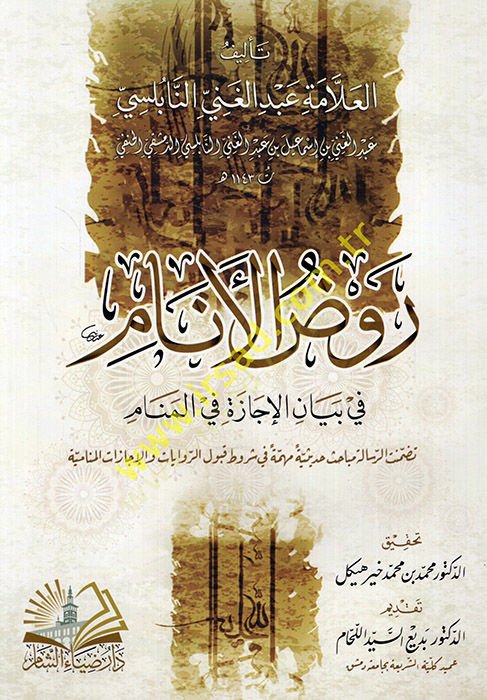 تأليف
العلّامة عبد الغني النابلسي
عبد الغني بن إسماعيل بن عبد الغني النابلسي الدمشقي الحنفي
ت ١١٤٣ هـ
روض الأنام
في بيان الإجازة في المنام
تضمنت الرسالة مباحث حديثية مهمة في شروط قبول الروايات والإجازات المنامية
تحقيق
الدكتور محمد بن محمد خير هيكل
تقديم
الدكتور بديع السيد اللحام
عميد كلية الشريعة بجامعة دمشق
الله
دار ضياء الشام